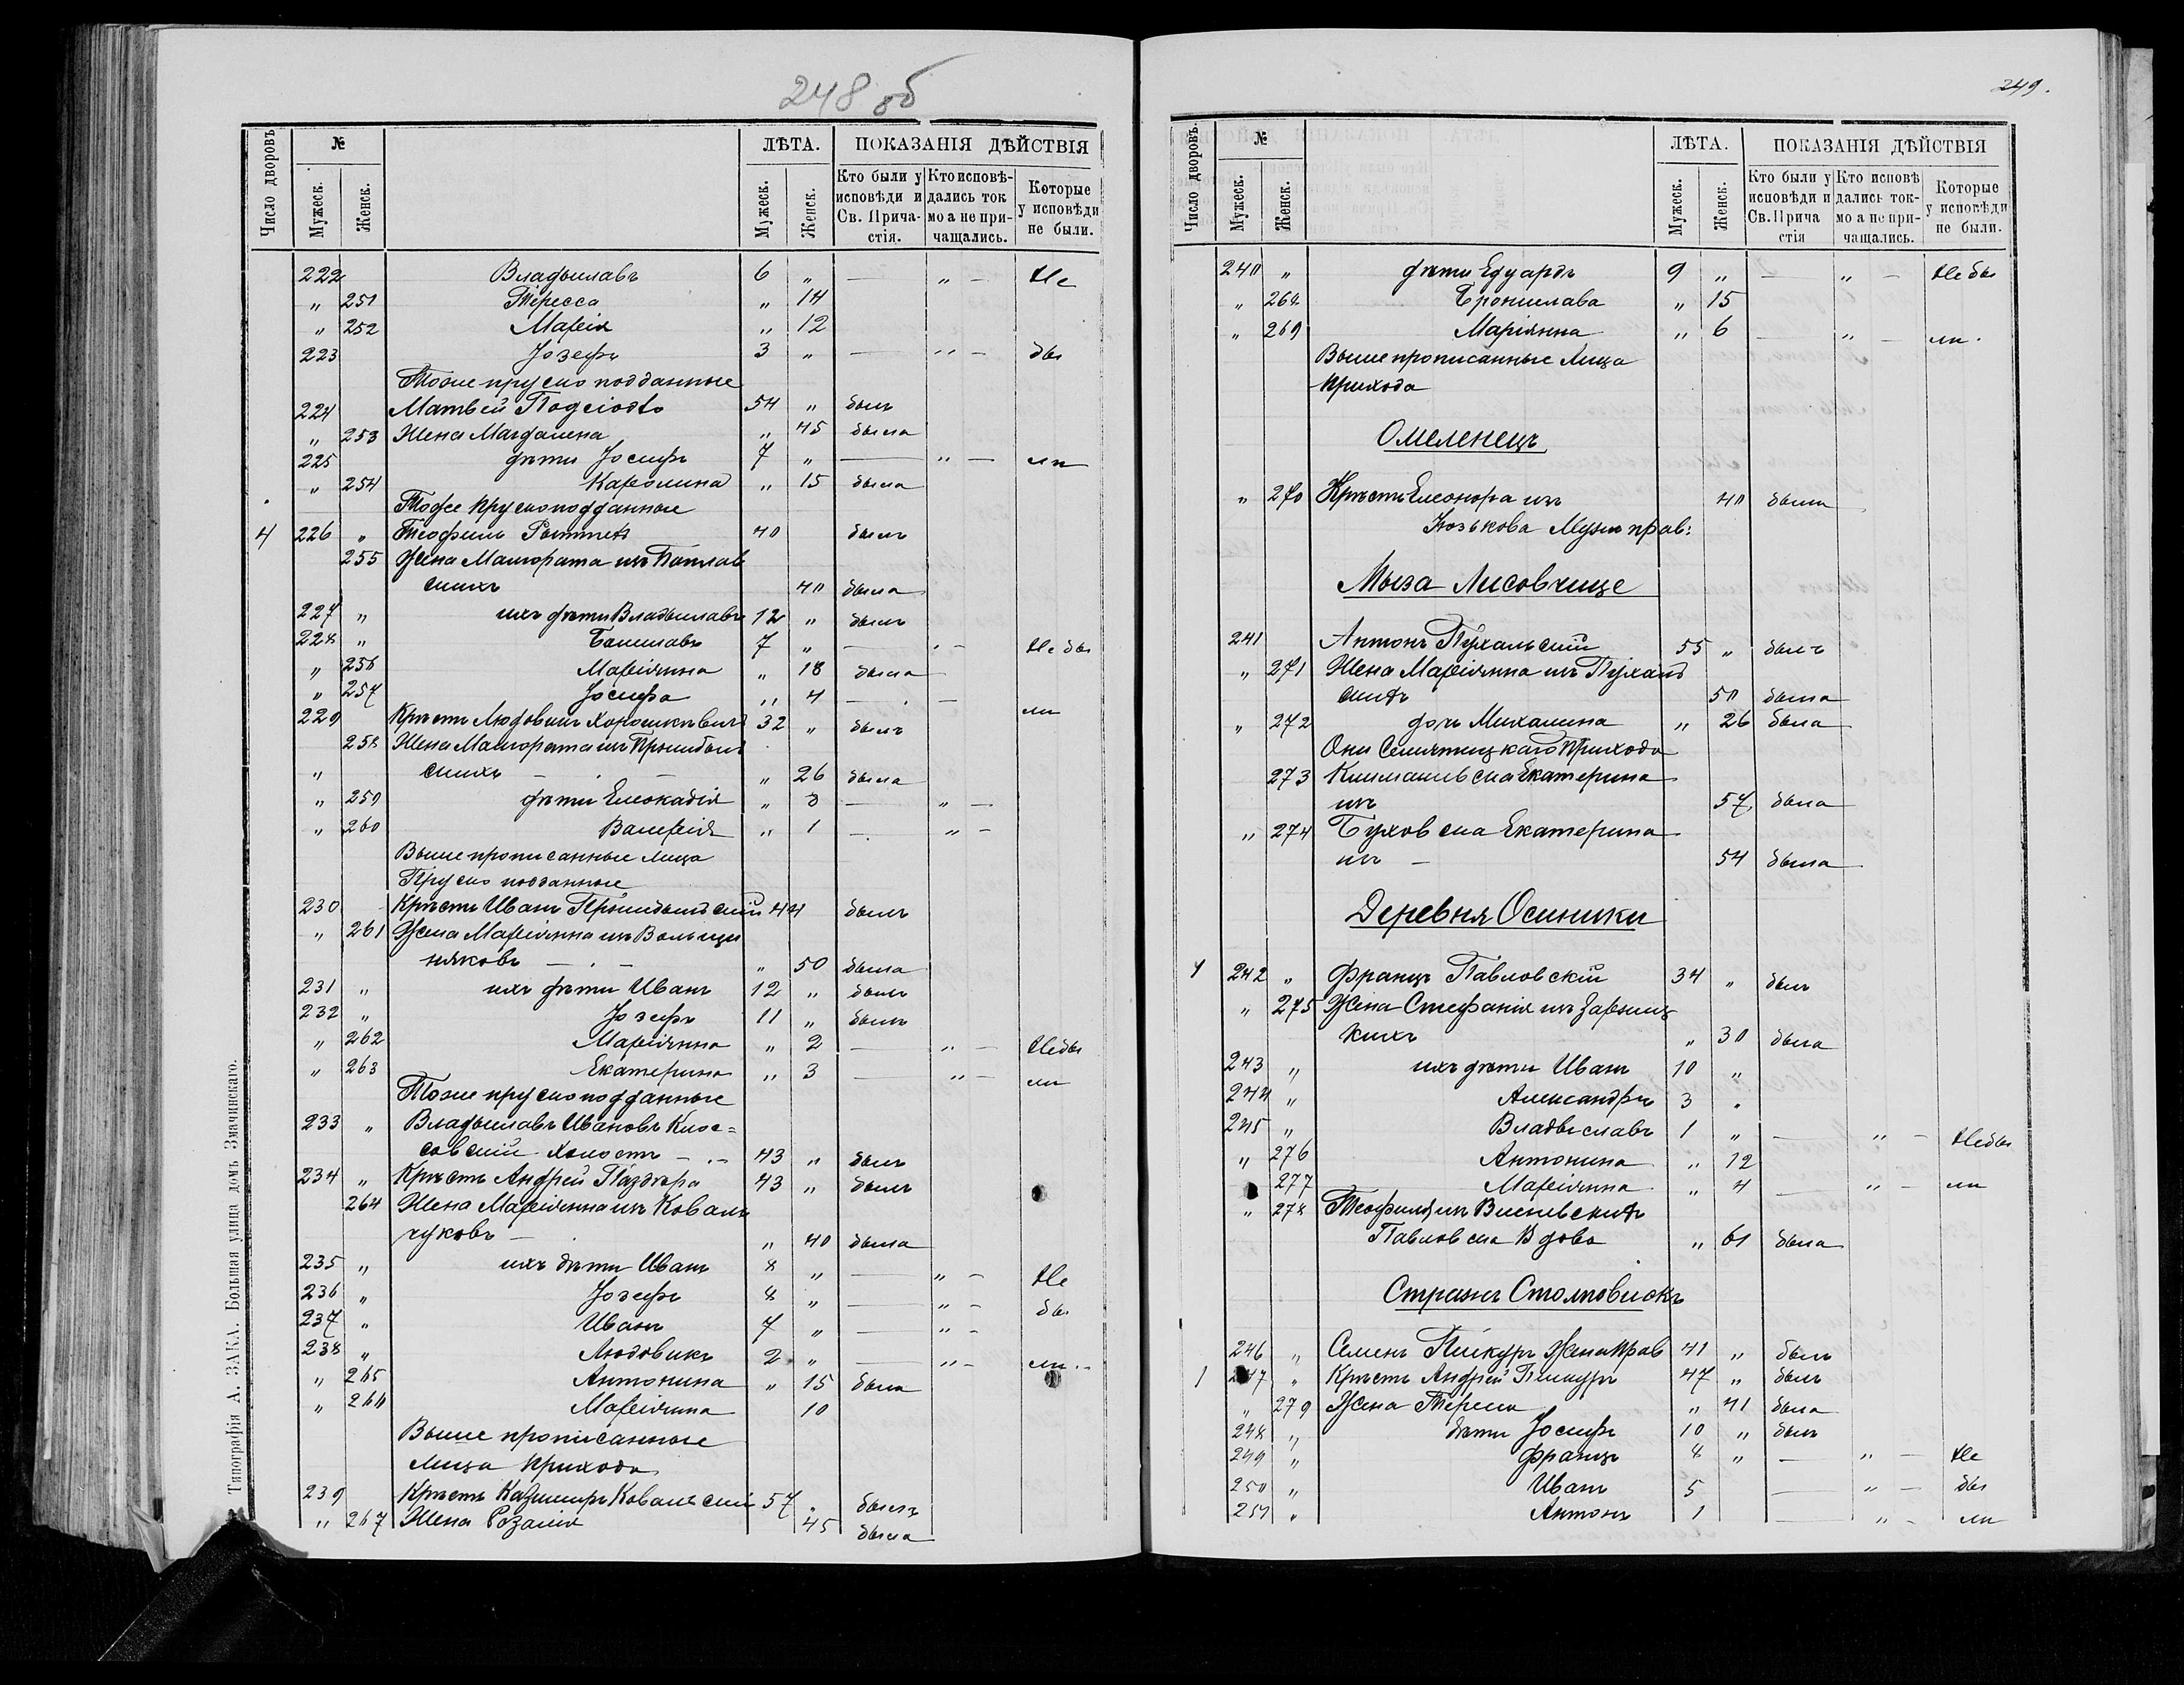 248 об
Число дворовъ
№
ЛѢТА.
ПОКАЗАНІЯ ДѢЙСТВІЯ
Мужеск.
Женск.
Мужеск.
Женск.
Кто были у исповѣди и Св. Причастія.
Кто исповѣдались ток мо а не причащались.
Которые у исповѣди не были.
222 Владыславъ 6 „ — „ — Не
„ 251 Тересса „ 14
„ 252 Марія „ 12
223 Іозефъ 3 „ — „ — бы
Тоже пруско подданные
224 Матвей 54 „ былъ
„ 253 Жена Магдалена „ 45 была
225 дѣти Іосифъ 7 „ — „ — ли
„ 254 Каролина „ 15 была
Тоже прускоподданные
4 226 „ Теофиль 40 былъ
255 Жена Малгората изъ
скихъ 40 была
227 „ ихъ дѣти Владыславъ 12 „ былъ
228 „ Болиславъ 7 „ — „ — Не бы
„ 256 Маріянна „ 18 была
„ 257 Іосифа „ 4 — „ — ли
229 Крѣст Людовикъ 32 „ былъ
258 Жена Малгората изъ
„ скихъ — „ — „ 26 была
„ 259 дѣти Елеокадія „ 3 — „ —
„ 260 Валерія „ 1 — „ —
Выше прописанные лица
Пруско подданные
230 Крѣст Иванъ 44 былъ
„ 261 Жена Маріянна изъ Вольщи
няковъ — „ — „ 50 была
231 „ ихъ дѣти Иванъ 12 „ былъ
232 „ Іозефъ 11 „ былъ
„ 262 Маріянна „ 2 — „ — Небы
„ 263 Екатерина „ 3 — „ — ли
Тоже прускоподданные
233 „ Владыславъ Ивановъ Клос=
совскій холостъ — „ — 43 „ былъ
234 „ Крѣст Андрей Паздера 43 „ былъ
264 Жена Маріянна изъ Коваль
чуковъ — „ 40 была
235 „ ихъ дѣти Иванъ 8 „ — „ — Не
236 „ Іозефъ 8 „ — „ — бы
237 „ Иванъ 7 „ — „ —
238 „ Людовикъ 2 „ — „ — ли
„ 265 Антонина „ 15 была
„ 266 Маріянна 10
Выше прописанные
лица прихода
239 Крѣст Казимиръ Ковальскій 57 „ былъ
„ 267 Жена Розалія 45 была
Типографія А. ЗАКА. Большая улица домъ Змачинскаго.
249.
Число дворовъ.
№
ЛѢТА.
ПОКАЗАНІЯ ДѢЙСТВІЯ
Мужеск.
Женск.
Мужеск.
Женск.
Кто были у исповѣди и Св. Прича стія
Кто исповѣ дались ток-мо а не при-чащались.
Которые у исповѣди не были.
240 „ дѣти Едуардъ 9 „ — „ — Не бы
„ 268 Брониславa „ 15
„ 269 Маріянна „ 6 — „ — ли.
Выше прописанные Лица
прихода
Омеленецъ
„ 270 Крѣст Елеонора изъ 40 была
Козькова Мужъ прав:
Мыза Лисовчице
241 Антонъ Пухальскій 55 „ былъ
„ 271 Жена Маріянна изъ Пухаль
скихъ 50 была
„ 272 дочь Михалина „ 26 была
Они Семятицкаго Прихода
273 Климанивска Екатерина
изъ 57 была
„ 274 Буховска Екатерина
изъ — 54 была
Деревня Осинники
1 242 „ Францъ Павловскій 34 „ былъ
„ 275 Жена Стефанія изъ Зарыц
кихъ „ 30 была
243 „ ихъ дѣти Иванъ 10 „
244 „ Александръ 3 „
245 „ Владыславъ 1 „ — „ — Небы
„ 276 Антонина „ 12
277 Маріянна „ 4 — „ — ли
„ 278 Теофиля изъ Висневскихъ
Павловска Вдова „ 61 была
Стражъ Столповискъ
246 „ Семенъ Пикуръ Жена прав 41 „ былъ
1 247 „ Крѣст Андрей Пикуръ 47 „ былъ
„ 279 Жена Тереса „ 41 была
248 „ дѣти Іосифъ 10 „ былъ
249 „ Францъ 8 „ — „ — Не
250 „ Иванъ 5 — „ — бы
251 „ Антонъ 1 — „ — ли